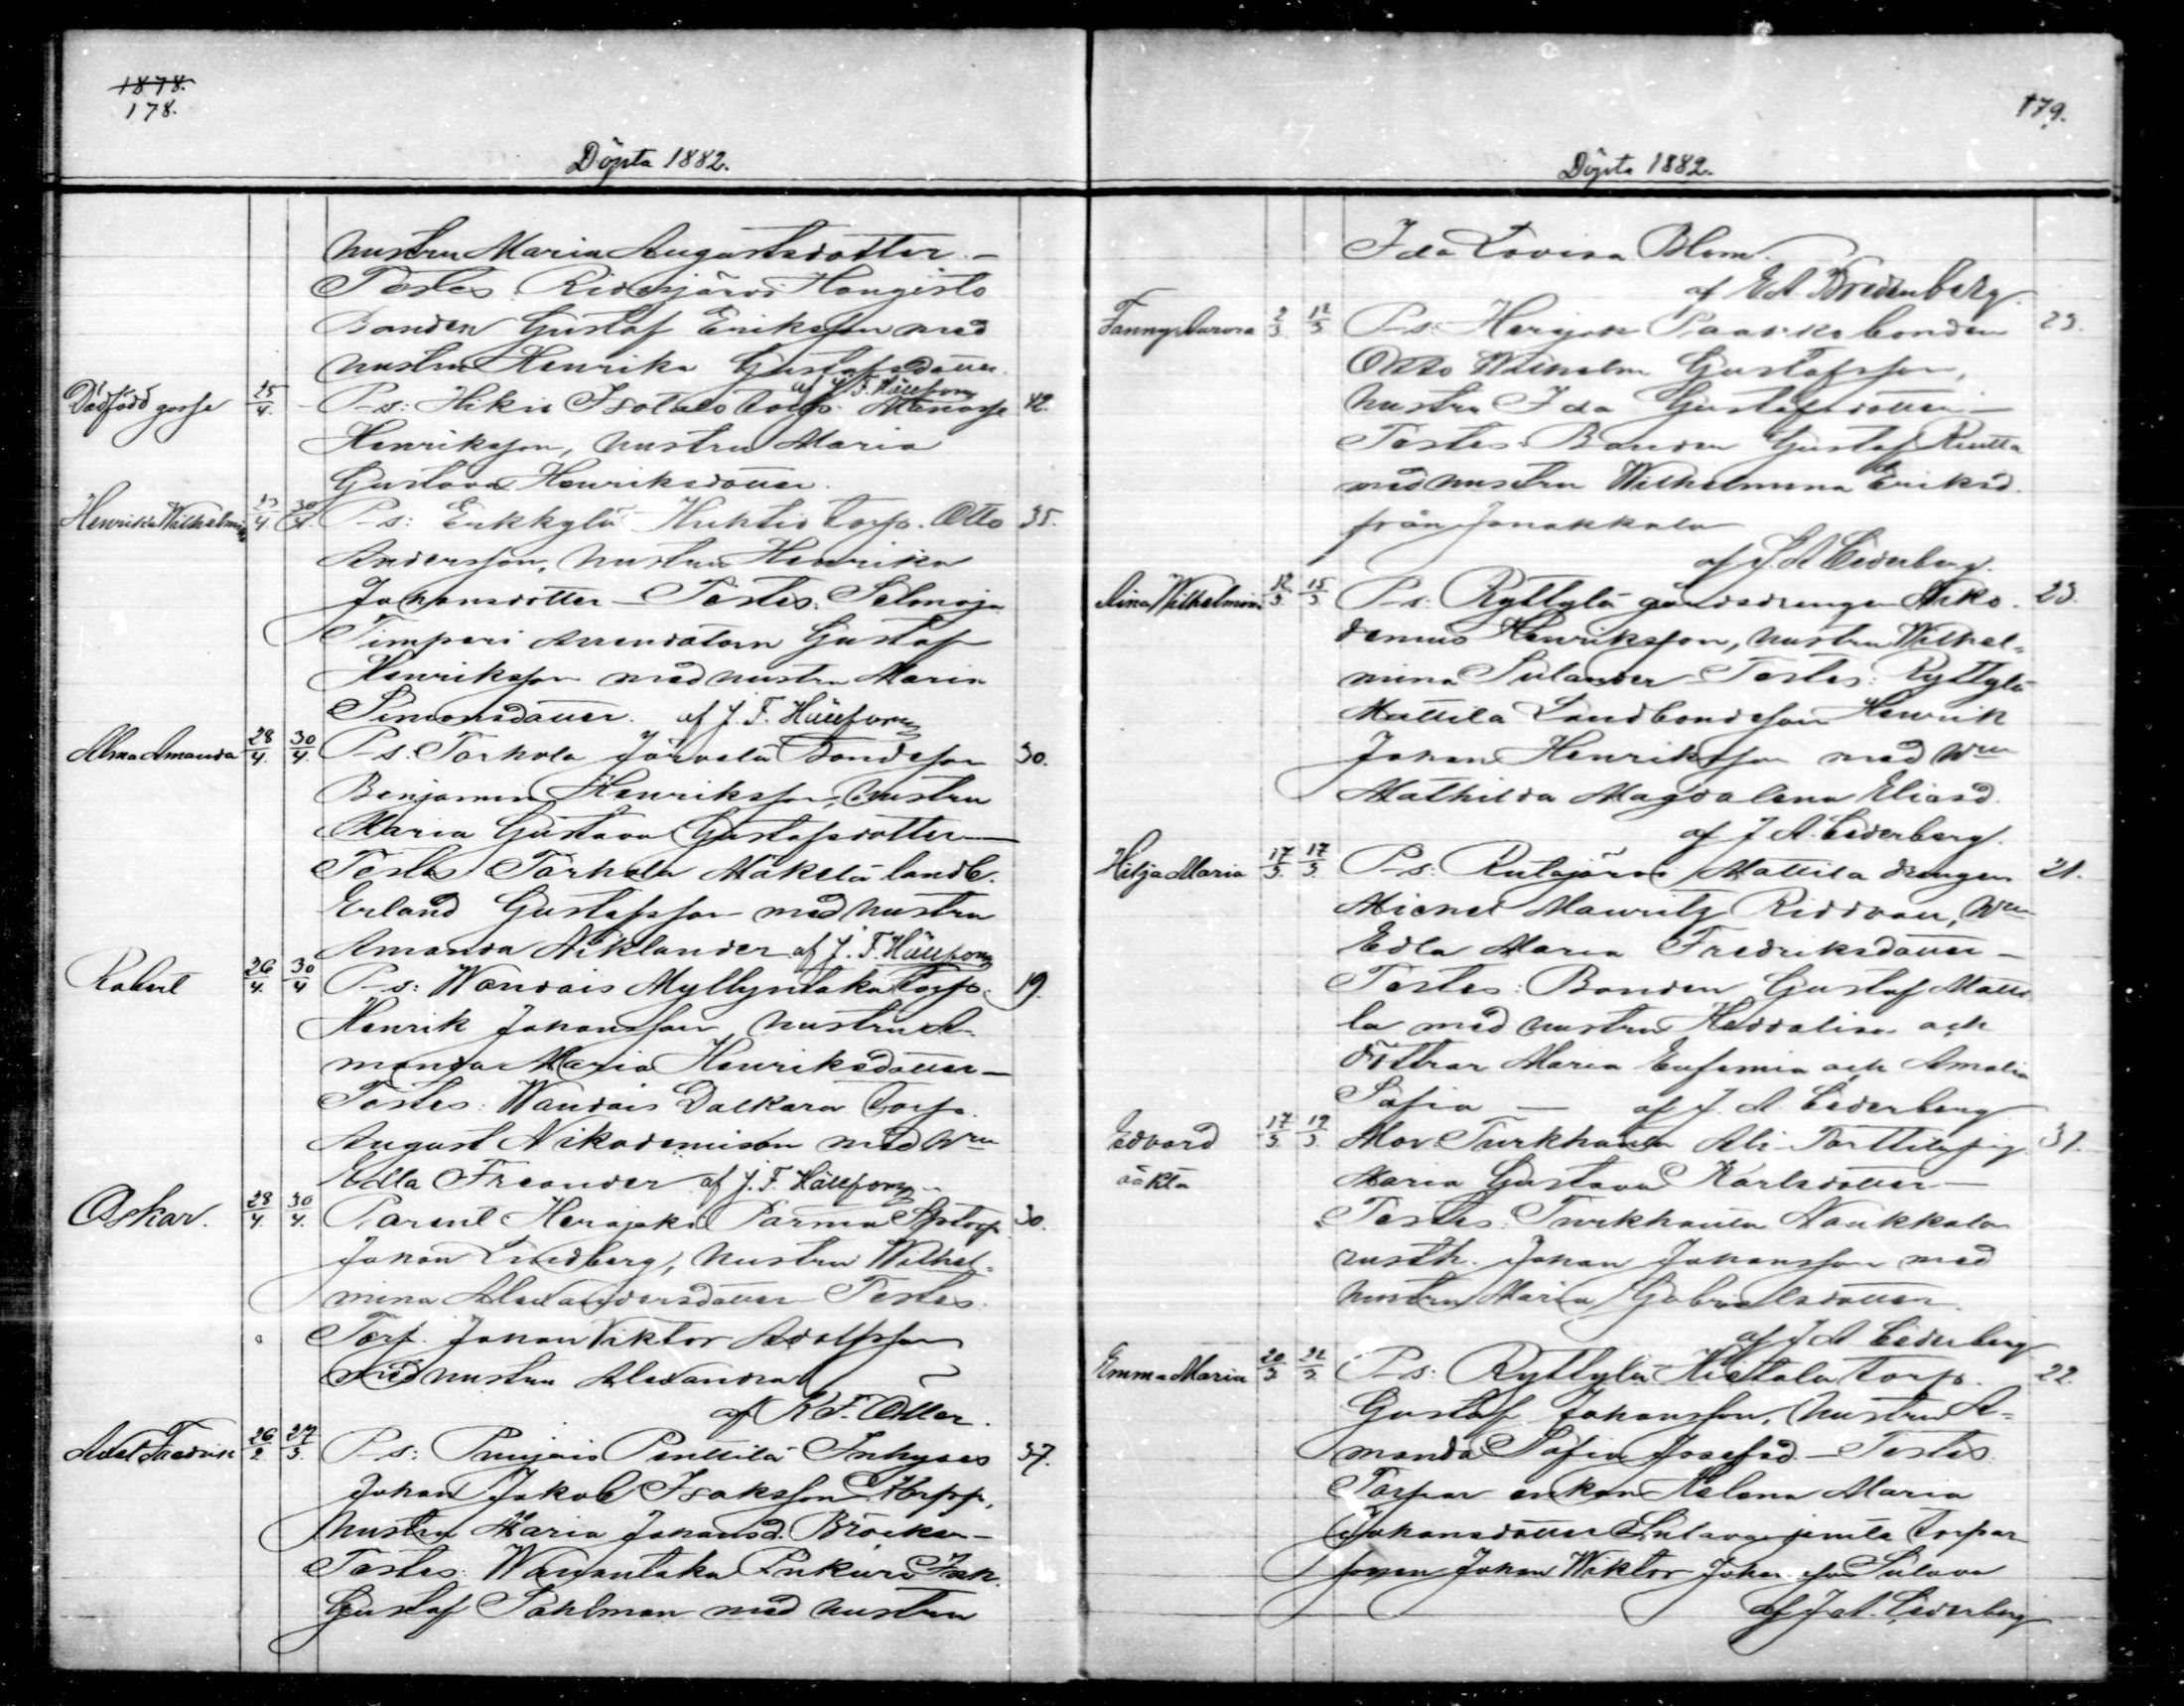 1878.
178.
Döpta 1882.
hustru Maria Augustsdotter. –
Testes Ridasjärvi Hongisto
Bonden Gustaf Eriksson med
hustru Henrika Gustafsdotter.
af J. F. Hällfors
Dödfödd gosse 25/4. – P–s: Hikiä Isotalo torp. Manasse 42.
Henriksson, hustru Maria
Gustava Henriksdotter.
Henrika Wilhelmina 25/4 30/4. P–s: Erkkylä Huhtis torp. Otto 35.
Andersson, hustru Henrika
Johansdotter – Testes: Selmoja
Timpari Arrendatorn Gustaf
Henriksson med hustru Maria
Simonsdotter. af J. F. Hällfors
Alma Amanda 28/4. 30/4. P–s. Torhola Järvelä Bondeson 30.
Benjamin Henriksson, hustru
Maria Gustava Gustafsdotter –
Testes Torhola Mäkelä landb.
Erland Gustafsson med hustru
Amanda Niklander af J. F. Hällfors
Robert 26/4. 30/4 P–s: Wandais Myllyntaka torp. 19.
Henrik Johansson, hustru A-
manda Maria Henriksdotter –
Testes: Wandais Dalkara torp.
August Nikodemisson med hru
Edla Freander af J. F. Hällfors
Oskar. 28/4. 30/4. Parent Herajoki Parma torp 30.
Johan Lindberg, hustru Wilhel-
mina Alexandersdotter Testes.
Torp. Johan Viktor Adolfsson
med hustru Alexandra
af K F. Öller.
Axel Fredrik 26/2. 27/3. P–s: Puujais Penttilä Inhyses 37.
Johan Jakob Isaksson
hustru Maria Johansd.
Testes: Wanantaka
Gustaf Sahlman med hustru
179.
Döpta 1882.
Ida Lovisa Blom.
af E A. Bredenberg.
Fanny Aurora 2/3. 12/3 P–s: Herajoki Paavko bonden 23.
Otto Wilhelm Gustafsson,
hustru Ida Gustafsdotter –
Testes: Bonden Gustaf
med hustru Wilhelmina Eriksd.
från Janakkala
af J. A Cederberg.
Aina Wilhelmina 12/3. 15/3 P–s: Ryttylä gårdsdrengen Niko- 23.
demus Henriksson, hustru Wilhel-
mina Sulander Testes: Ryttylä
Mattila Landbondeson Henrik
Johan Henriksson med hru
Mathilda Magdalena Eliasd.
af J A. Cederberg.
Hilja Maria 17/3. 17/3. P–s: Mattila drengen 21.
Michel Mauritz Riddvan, hru
Edla Maria Fredriksdotter –
Testes: Bonden Gustaf Matti-
la med hustru Hedvalisa och
döttrar Maria Eufemia och Amalia
Sofia – af J. A. Cederberg
Edvard 17/3. 19/3. Mor. Turkhauta Ali-Torttila pig. 31.
oäkta Maria Gustava Karlsdotter –
Testes. Turkhauta Naukkala
rusth. Johan Johansson med
hustru Maria Gabrielsdotter.
af J A Cederberg
Emma Maria 20/3 22/3. P–s: Ryttylä Hietala torp. 22.
Gustaf Johansson, hustru A-
manda Sofia Josefsd. – Testes.
Torpar enkan Helena Maria
Johansdotter jemte torpar
sonen Johan Wiktor Johansson
af J A. Cederberg